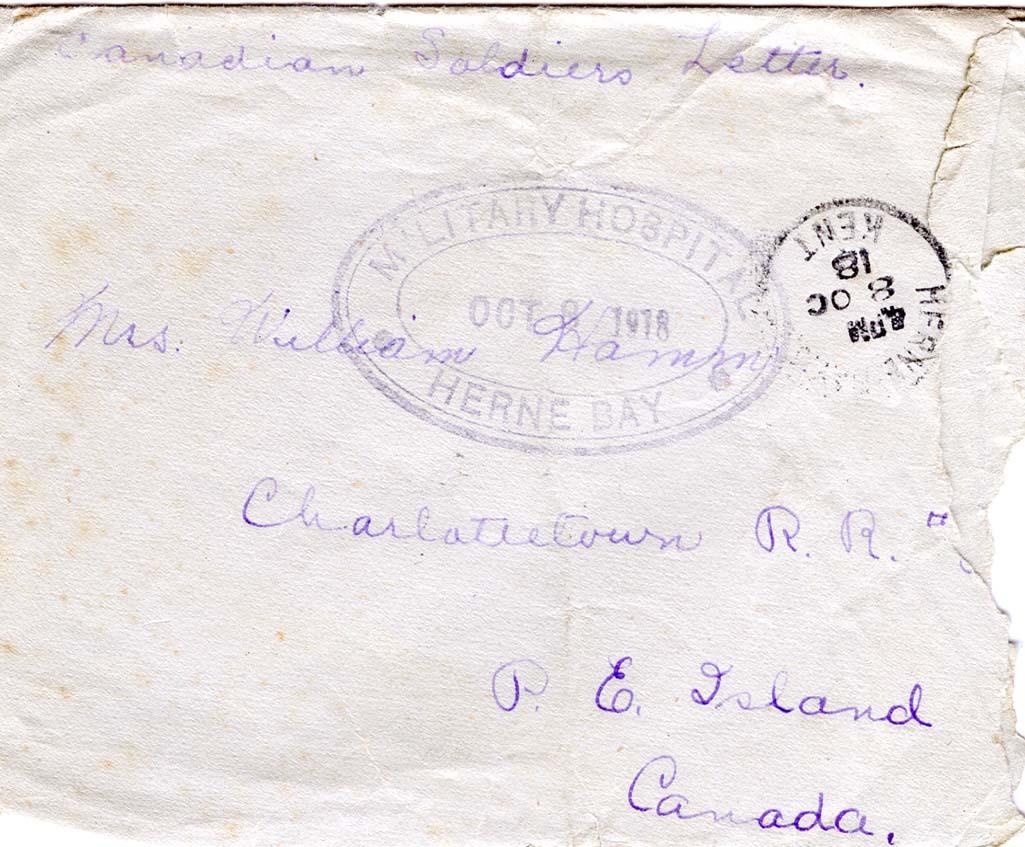 Canadian Soldiers Letter.
MILITARY HOSPITAL
OCT 1918
HERNE BAY
HERNE
KENT
4 PM
8 OC
18
Mrs. William Hamm
Charlottetown R. R.
P. E. Island
Canada.